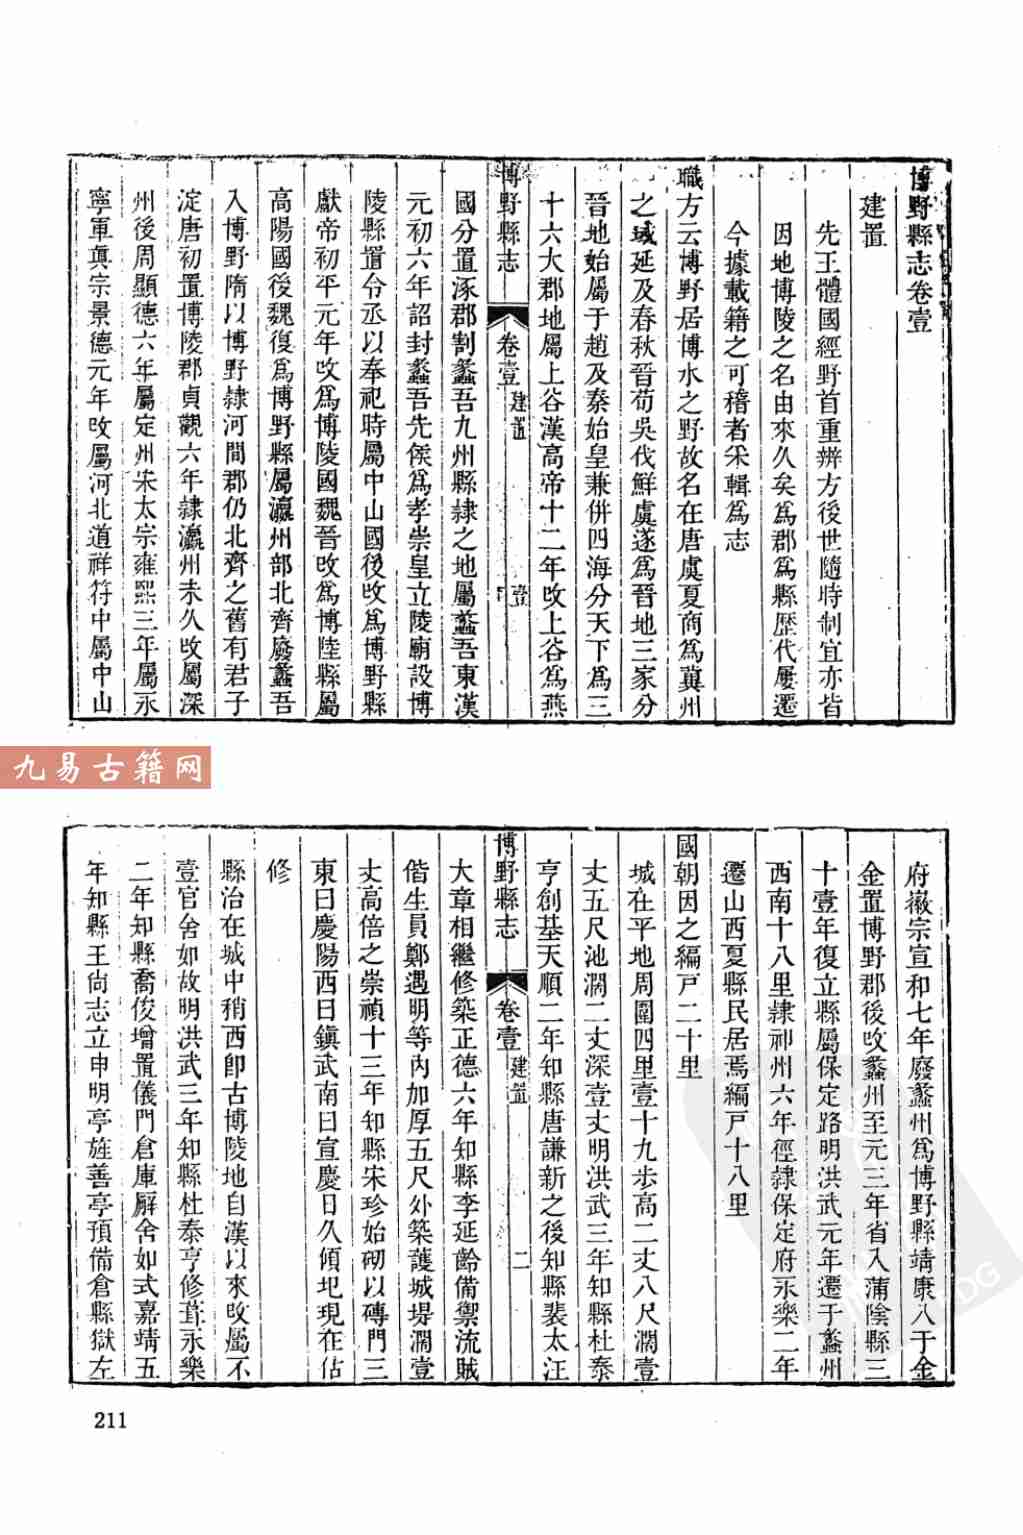 博野縣志卷壹
建置
先王體國經野首重辨方後世隨時制宜亦皆
因地博陵之名由來久矣為郡為縣歷代屢遷
今據載籍之可稽者采輯為志
職方云博野居博水之野故名在唐虞夏商為冀州
之域延及春秋晉荀吳伐鮮虞遂為晉地三家分
晉地始屬于趙及秦始皇兼併四海分天下為三
十六大郡地屬上谷漢高帝十二年改上谷為燕
博野縣志 卷壹 建置 壹
國分置涿郡割蠡吾九州縣隸之地屬蠡吾東漢
元初六年詔封蠡吾先侯為孝崇皇立陵廟設博
陵縣置令丞以奉祀時屬中山國後改為博野縣
獻帝初平元年改為博陵國魏晉改為博陸縣屬
高陽國後魏復為博野縣屬瀛州部北齊廢蠡吾
入博野隋以博野隸河間郡仍北齊之舊有君子
淀唐初置博陵郡貞觀六年隸瀛州未久改屬深
州後周顯德六年屬定州宋太宗雍熙三年屬永
寧軍真宗景德元年改屬河北道祥符中屬中山
府徽宗宣和七年廢蠡州為博野縣靖康入于金
金置博野郡後改蠡州至元三年省入蒲陰縣三
十壹年復立縣屬保定路明洪武元年遷于蠡州
西南十八里隸祁州六年徑隸保定府永樂二年
遷山西夏縣民居焉編戶十八里
國朝因之編戶二十里
城在平地周圍四里壹十九步高二丈八尺濶壹
丈五尺池濶二丈深壹丈明洪武三年知縣杜泰
亨創基天順二年知縣唐謙新之後知縣裴太汪
博野縣志 卷壹 建置 二
大章相繼修築正德六年知縣李延齡備禦流賊
偕生員鄭遇明等內加厚五尺外築護城堤濶壹
丈高倍之崇禎十三年知縣宋珍始砌以磚門三
東曰慶陽西曰鎮武南曰宣慶日久傾圯現在估
修
縣治在城中稍西卽古博陵地自漢以來改屬不
壹官舍如故明洪武三年知縣杜泰亨修葺永樂
二年知縣喬俊增置儀門倉庫廨舍如式嘉靖五
年知縣王尙志立申明亭旌善亭預備倉縣獄左
九易古籍网
211